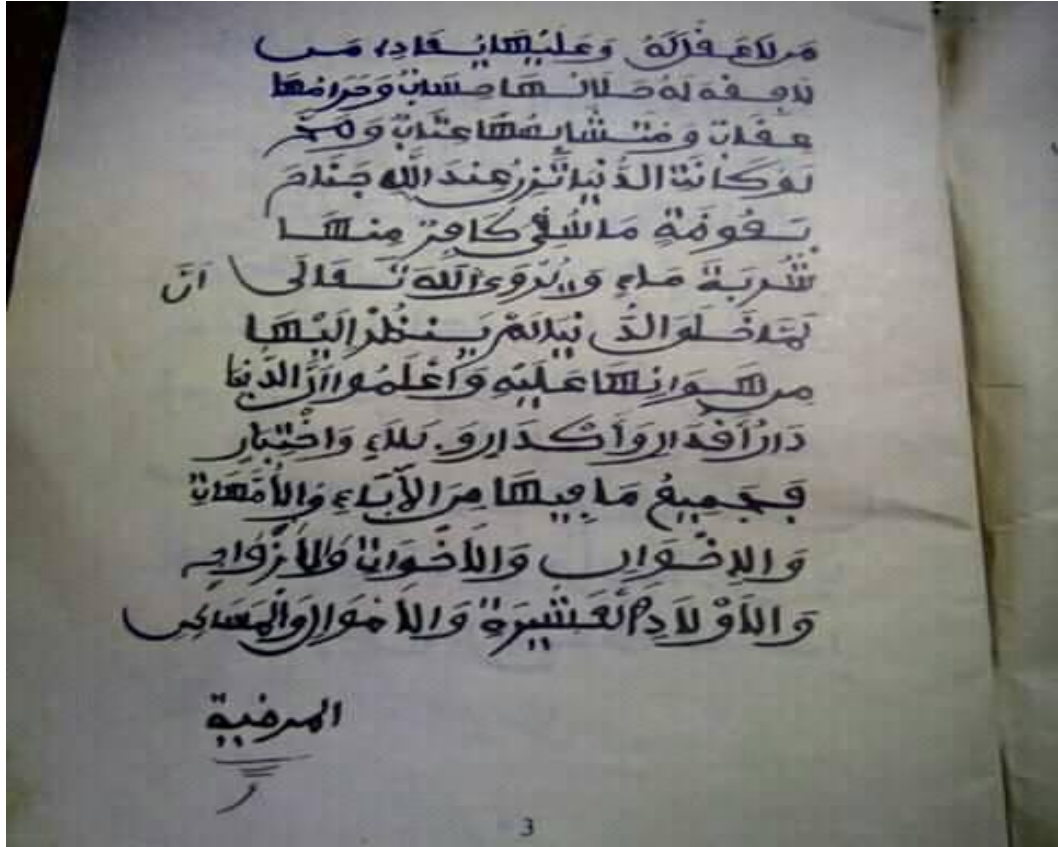 مَن لاَ عَقْلَ لَهُ وَعَلَيْهَا يُعَادِى مَن
لاَ فِقْهَ لَهُ حَلاَلُهَا حِسَابٌ وَحَرَامُهَا
عِقَابٌ وَمُتَشَابِهُهَا عِتَابٌ
لَوْ كَانَتْ الدُّنْيَا تَزِنُ عِنْدَ اللَّهِ جَنَاحَ
بَعُوضَةٍ مَا سُقِىَ كَافِرٌ مِنْهَا
شُرْبَةَ مَاءٍ وَيُرْوَى اللَّه تَعَالَى اَنَّ
لَمَّا خَلَقَ الدُّنْيَا لَمْ يَنْظُرْ إِلَيْهَا
مِن هَوَانِهَا عَلَيْهِ وَاعْلَمُوا أَنَّ الدُّنْيَا
دَارُ أَقْدَارٍ وَأَكْدَارٍ وَبَلاَءٍ وَاخْتِبَارٍ
فَجَمِيعُ مَا فِيهَا مِنَ الْآبَاءِ وَالْأُمَّهَاتِ
وَالإِخْوَانِ وَالأَخَوَاتِ وَالأَزْوَاجِ
وَالأَوْلاَدِ وَالْعَشِيرَةِ وَالأَمْوَالِ وَالْمَسَاكِنِ
المرضية
3